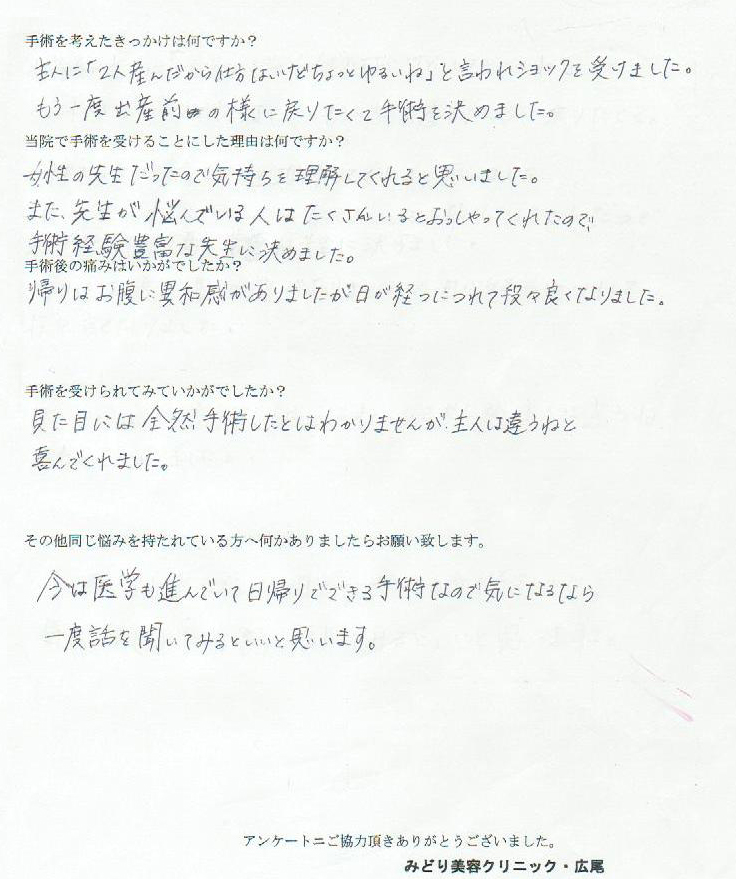 手術を考えたきっかけは何ですか？
主人に「2人産んだから仕方はいけどちょっとゆるいね」と言われショックを受けました。
もう一度出産前の様に戻りたくて手術を決めました。
当院で手術を受けることにした理由は何ですか？
女性の先生だったので気持ちを理解してくれると思いました。
また、先生が悩んでいる人はたくさんいるとおっしゃってくれたので、
手術経験豊富な先生に決めました。
手術後の痛みはいかがでしたか？
帰りはお腹に異和感がありましたが日が経つにつれて段々良くなりました。
手術を受けられてみていかがでしたか？
見た目には全然手術したとはわかりませんが、主人は違うねと
喜んでくれました。
その他同じ悩みを持たれている方へ何かありましたらお願い致します。
今は医学も進んでいて日帰りでできる手術なので気になるなら
一度話を聞いてみるといいと思います。
アンケートニご協力頂きありがとうございました。
みどり美容クリニック・広尾